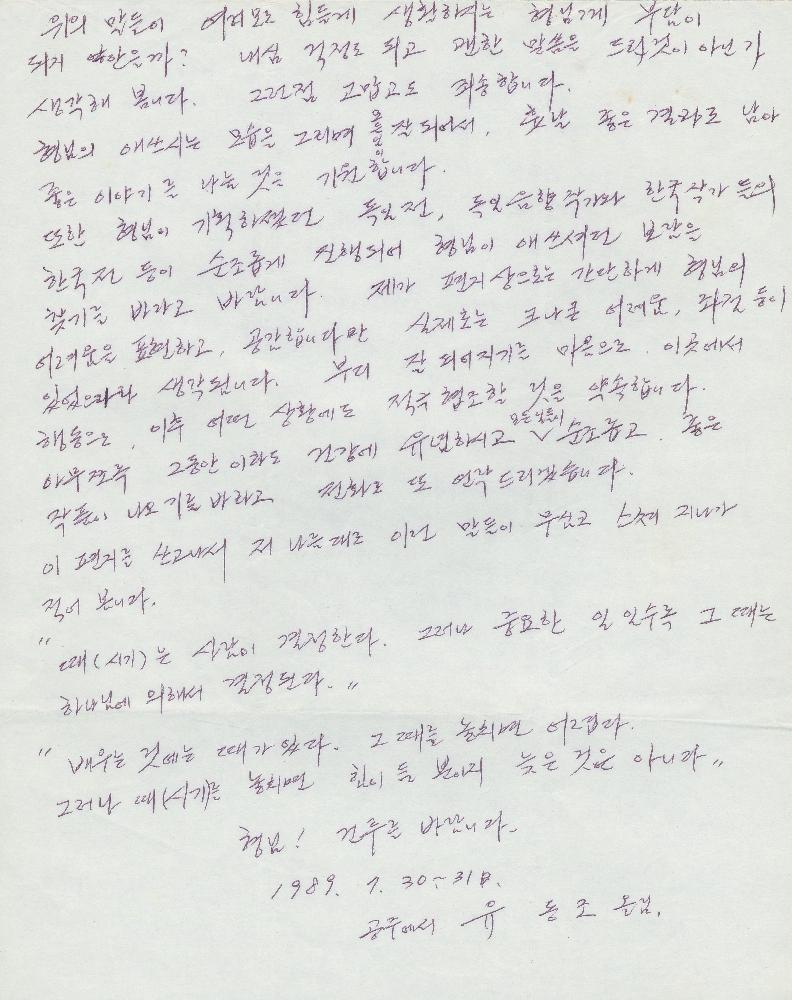 위의 말들이 여러모로 힘들게 생활하여는 형님께 부담이
되지 않을까? 내심 걱정도 되고 괜한 말씀을 드릴것이 아닌가
생각해 봅니다. 그런점 고맙고도 죄송합니다.
형님의 애쓰시는 모습을 그리며 모든일이 잘 되어서, 훗날 좋은 결과로 남아
좋은 이야기를 나눌 것을 기원합니다.
또한 형님이 기획하셨던 독일전, 독일음향작가와 한국작가 들의
한국전 등이 순조롭게 진행되어 형님이 애쓰셔던 보람을
찾기를 바라고 바랍니다. 제가 편지상으로는 간단하게 형님의
어려움을 표현하고, 공감합니다만 실제로는 크나큰 어려움, 좌절 등이
있었으리라 생각됩니다. 부디 잘 되어지기를 마음으로, 이곳에서
행동으로, 이후 어떤 상황에도 적극 협조할 것을 약속합니다.
아무쪼록 그동안 이라도 건강에 유념하시고 모든일들이 순조롭고, 좋은
작품이 나오기를 바라고 전화로 또 연락 드리겠습니다.
이 편지를 쓰고나서 저 나름대로 이런 말들이 무심코 스쳐 지나가
적어 봅니다.
" 때(시기)는 사람이 결정한다. 그러나 중요한 일 일수록 그 때는
하나님에 의해서 결정된다. "
" 배우는 것에는 때가 있다. 그 때를 놓치면 어렵다.
그러나 때(시기)를 놓치면 힘이 들 뿐이지 늦은 것은 아니다 "
형님! 건투를 바랍니다.
1989. 7. 30~31日.
공주에서 유 동 조 올림.